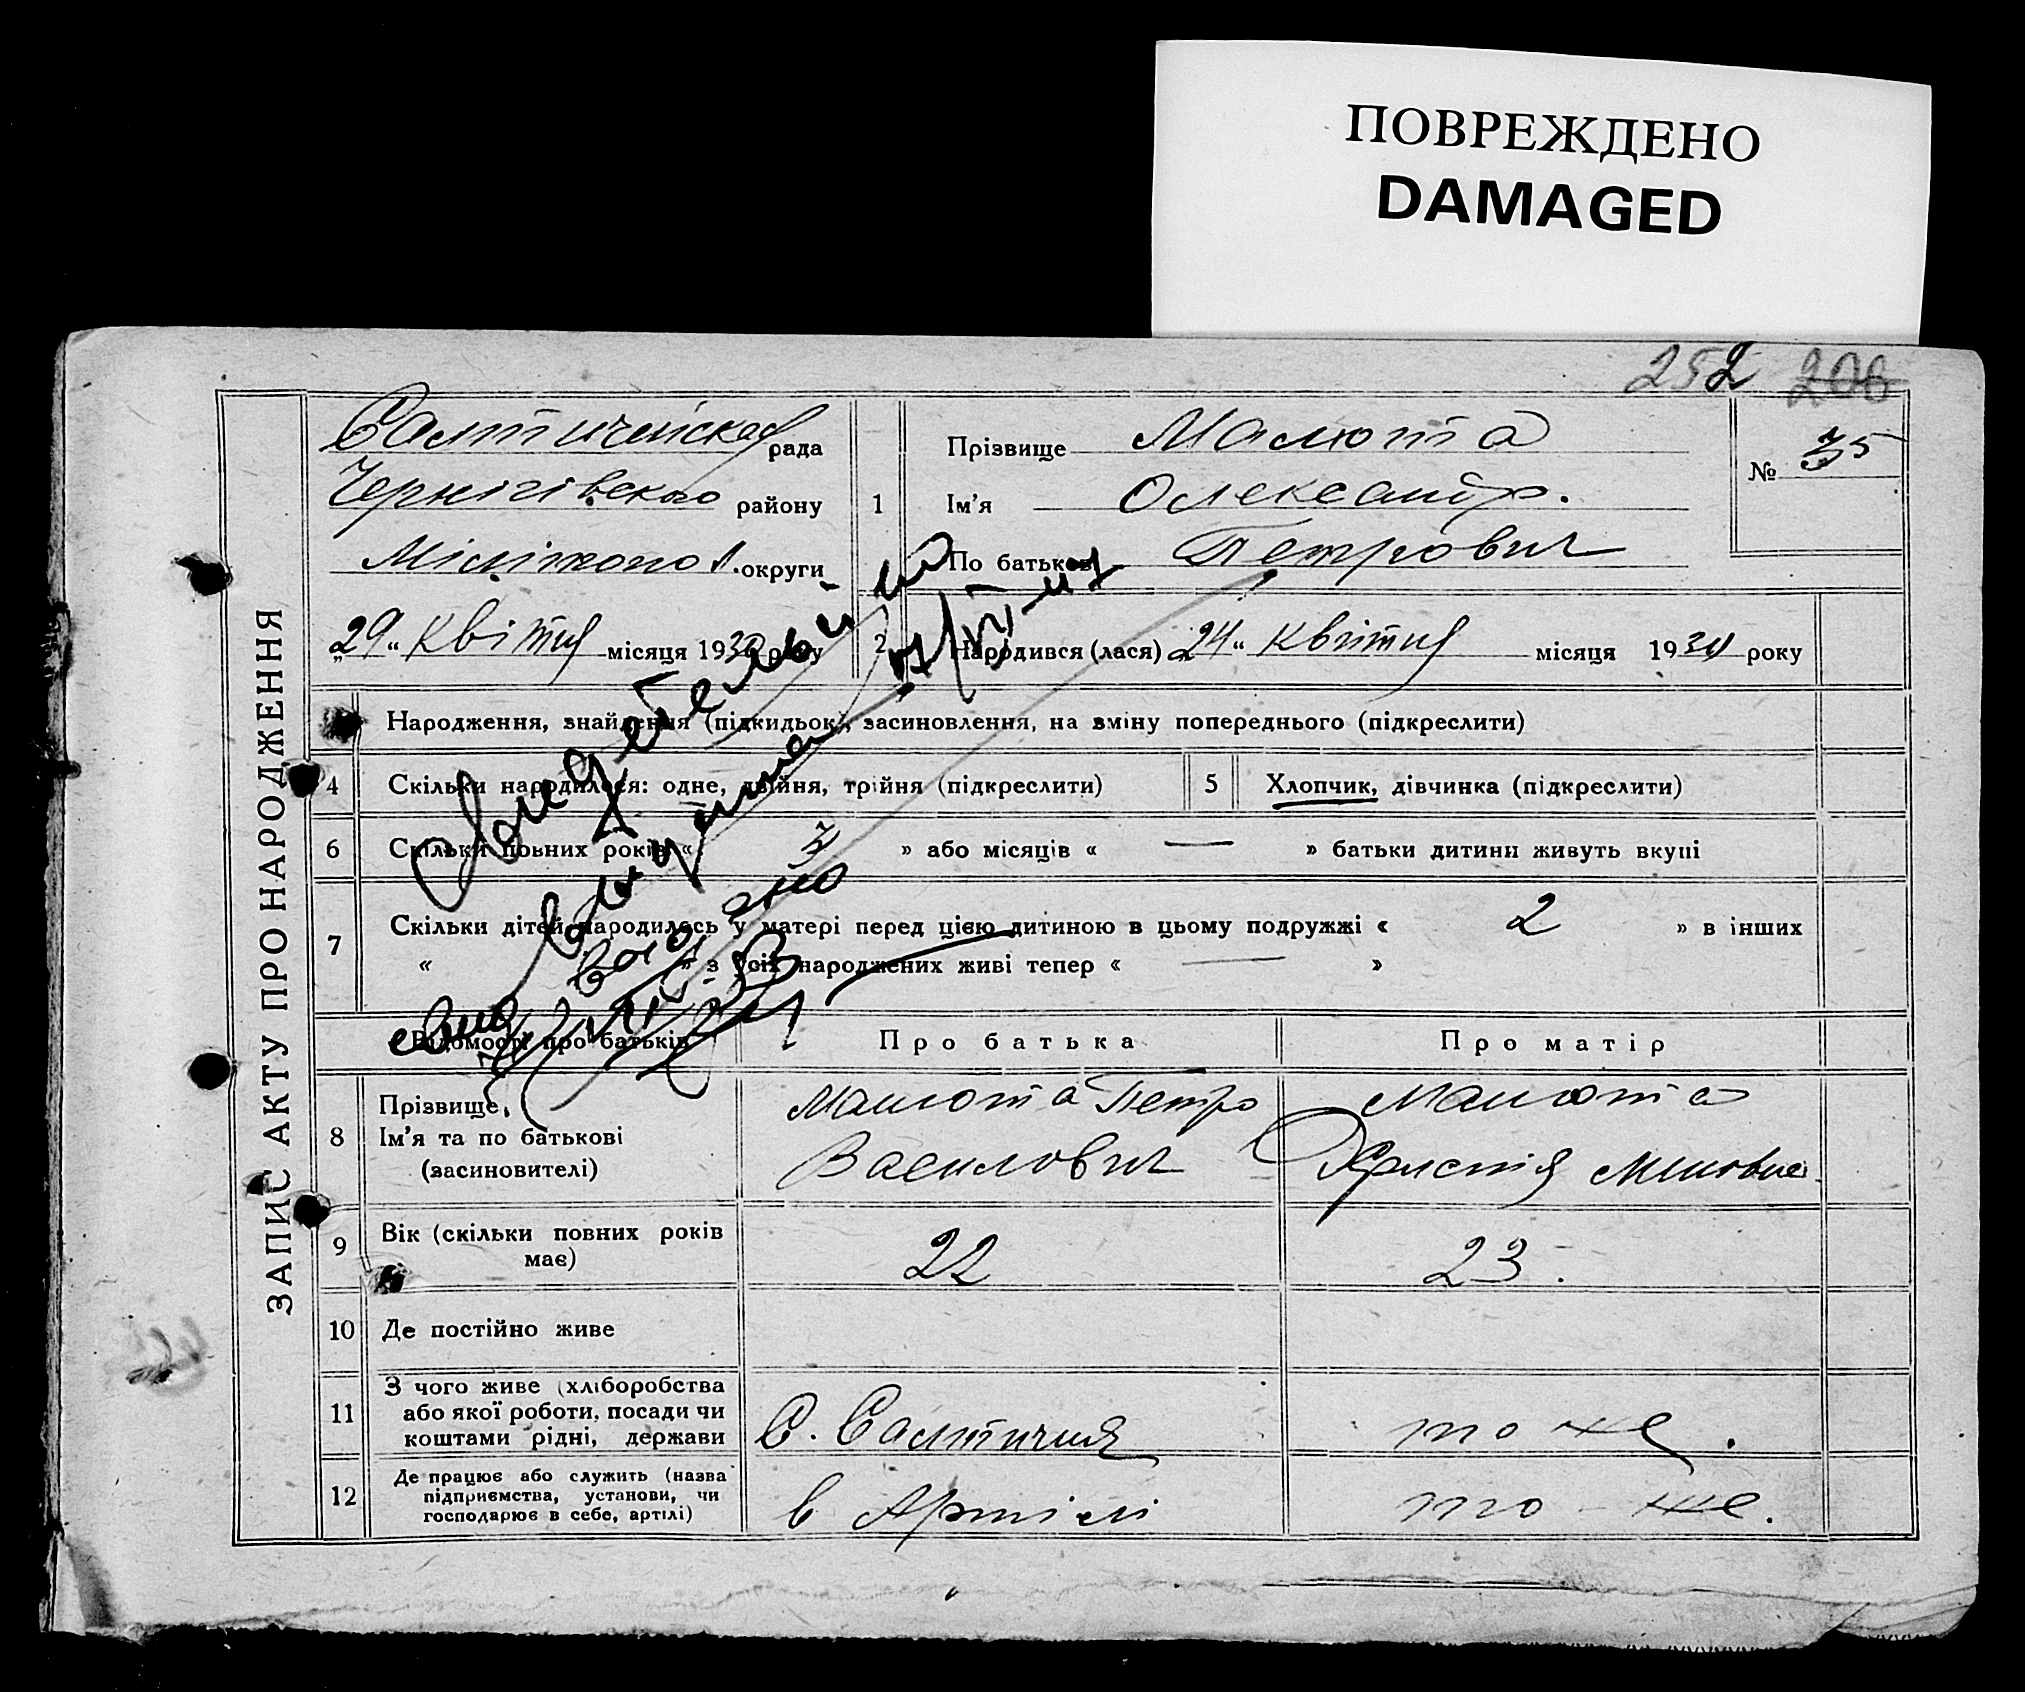 ПОВРЕЖДЕНО
DAMAGED
252 206
ЗАПИС АКТУ ПРО НАРОДЖЕННЯ
Салтичийская рада
Чернігівського району
Мелітопол. округи
„29“ квітня місяця 1930 року
1
Прізвище Малюта
Ім'я Олександр.
По батькові Петрович
№ 35
2 Народився (лася) „24“ квітня місяця 1930 року
Народження, знайдення (підкидьок), засиновлення, на зміну попереднього (підкреслити)
4 Скільки народилося: одне, двійня, трійня (підкреслити)
5 Хлопчик, дівчинка (підкреслити)
6 Скільки повних років « 3 » або місяців « — » батьки дитини живуть вкупі
7 Скільки дітей народилось у матері перед цією дитиною в цьому подружжі « 2 » в інших
« » з усіх народжених живі тепер « — »
Свидетельство
Відомості про батьків
Про батька
Про матір
8 Прізвище,
Ім'я та по батькові
(засиновителі)
Малюта Петро
Василович
Малюта
Христія
9 Вік (скільки повних років
має)
22
23.
10 Де постійно живе
11 З чого живе (хліборобства
або якої роботи, посади чи
коштами рідні, держави
С. Салтичия
то же.
12 Де працює або служить (назва
підприємства, установи, чи
господарює в себе, артілі)
в Артілі
то-же.